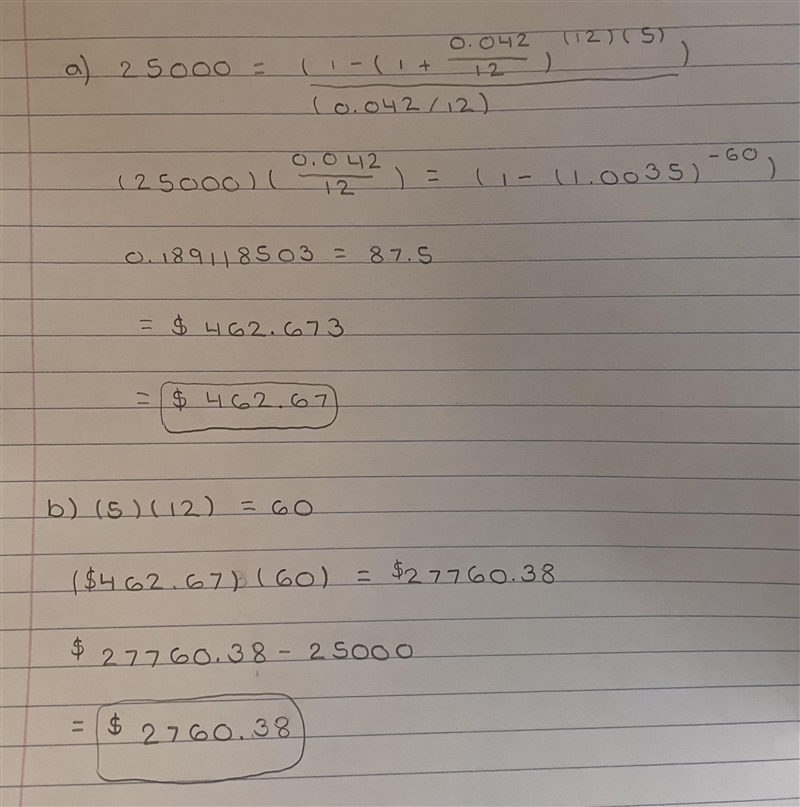 a) 25000 = (1-(1+ 0.042/12 )^(12)(5) ) / (0.042/12)
(25000)( 0.042/12 ) = (1-(1.0035)^-60)
0.189118503 = 87.5
= $ 462.673
= $ 462.67
b) (5)(12) = 60
($462.67)(60) = $27760.38
$ 27760.38 - 25000
= $ 2760.38